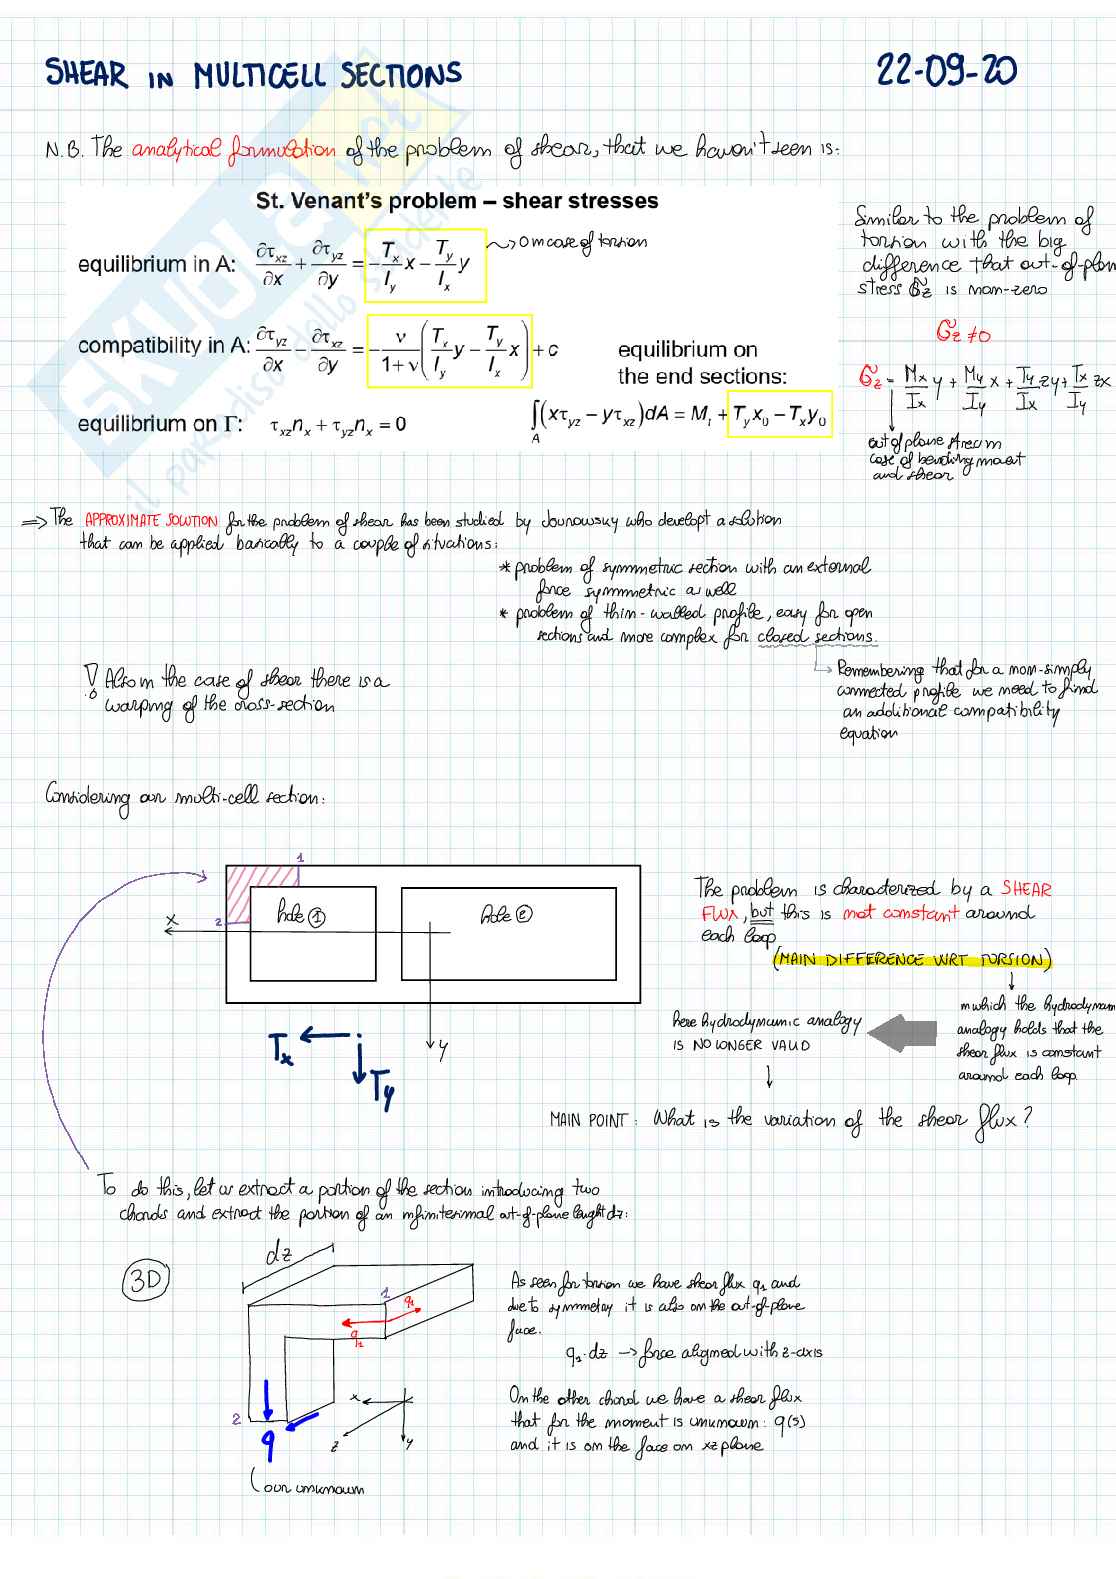 SHEAR IN MULTICELL SECTIONS
22-09-20
N.B. The analytical formulation of the problem of shear, that we haven't seen is:
St. Venant's problem – shear stresses
equilibrium in A: ∂τxz/∂x + ∂τyz/∂y = -Tx/Iy x - Ty/Ix y
0 in case of torsion
compatibility in A: ∂τyz/∂x - ∂τxz/∂y = -ν/(1+ν) (Tx/Iy y - Ty/Ix x) + c
equilibrium on
the end sections:
equilibrium on Γ: τxz nx + τyz nx = 0
∫A (xτyz - yτxz)dA = Mt + Ty x0 - Tx y0
Similar to the problem of
torsion with the big
difference that out-of-plan
stress σz is non-zero
σz ≠ 0
σz = Mx/Ix y + My/Iy x + Ty/Ix zy + Tx/Iy zx
out of plane stress in
case of bending moment
and shear
skuola.net
il paradiso dello studente
⇒ The APPROXIMATE SOLUTION for the problem of shear has been studied by Jourowsky who develop a solution
that can be applied basically to a couple of situations:
* problem of symmetric section with an external
force symmetric as well
* problem of thin-walled profile, easy for open
sections and more complex for closed sections.
Remembering that for a non-simply
connected profile we need to find
an additional compatibility
equation
! Also in the case of shear there is a
warping of the cross-section
Considering our multi-cell section:
1
2
hole 1
hole 2
x
y
Tx
Ty
The problem is characterized by a SHEAR
FLUX, but this is not constant around
each loop
(MAIN DIFFERENCE WRT TORSION)
in which the hydrodynam
analogy holds that the
shear flux is constant
around each loop.
here hydrodynamic analogy
IS NO LONGER VALID
MAIN POINT: What is the variation of the shear flux?
To do this, let us extract a portion of the section introducing two
chords and extract the portion of an infinitesimal out-of-plane lenght dz:
3D
dz
1
q1
q1
2
q
x
z
y
our unknown
As seen for torsion we have shear flux q1 and
due to symmetry it is also on the out-of-plane
face.
q1·dz → force aligned with z-axis
On the other chord we have a shear flux
that for the moment is unknown: q(s)
and it is on the face on xz plane